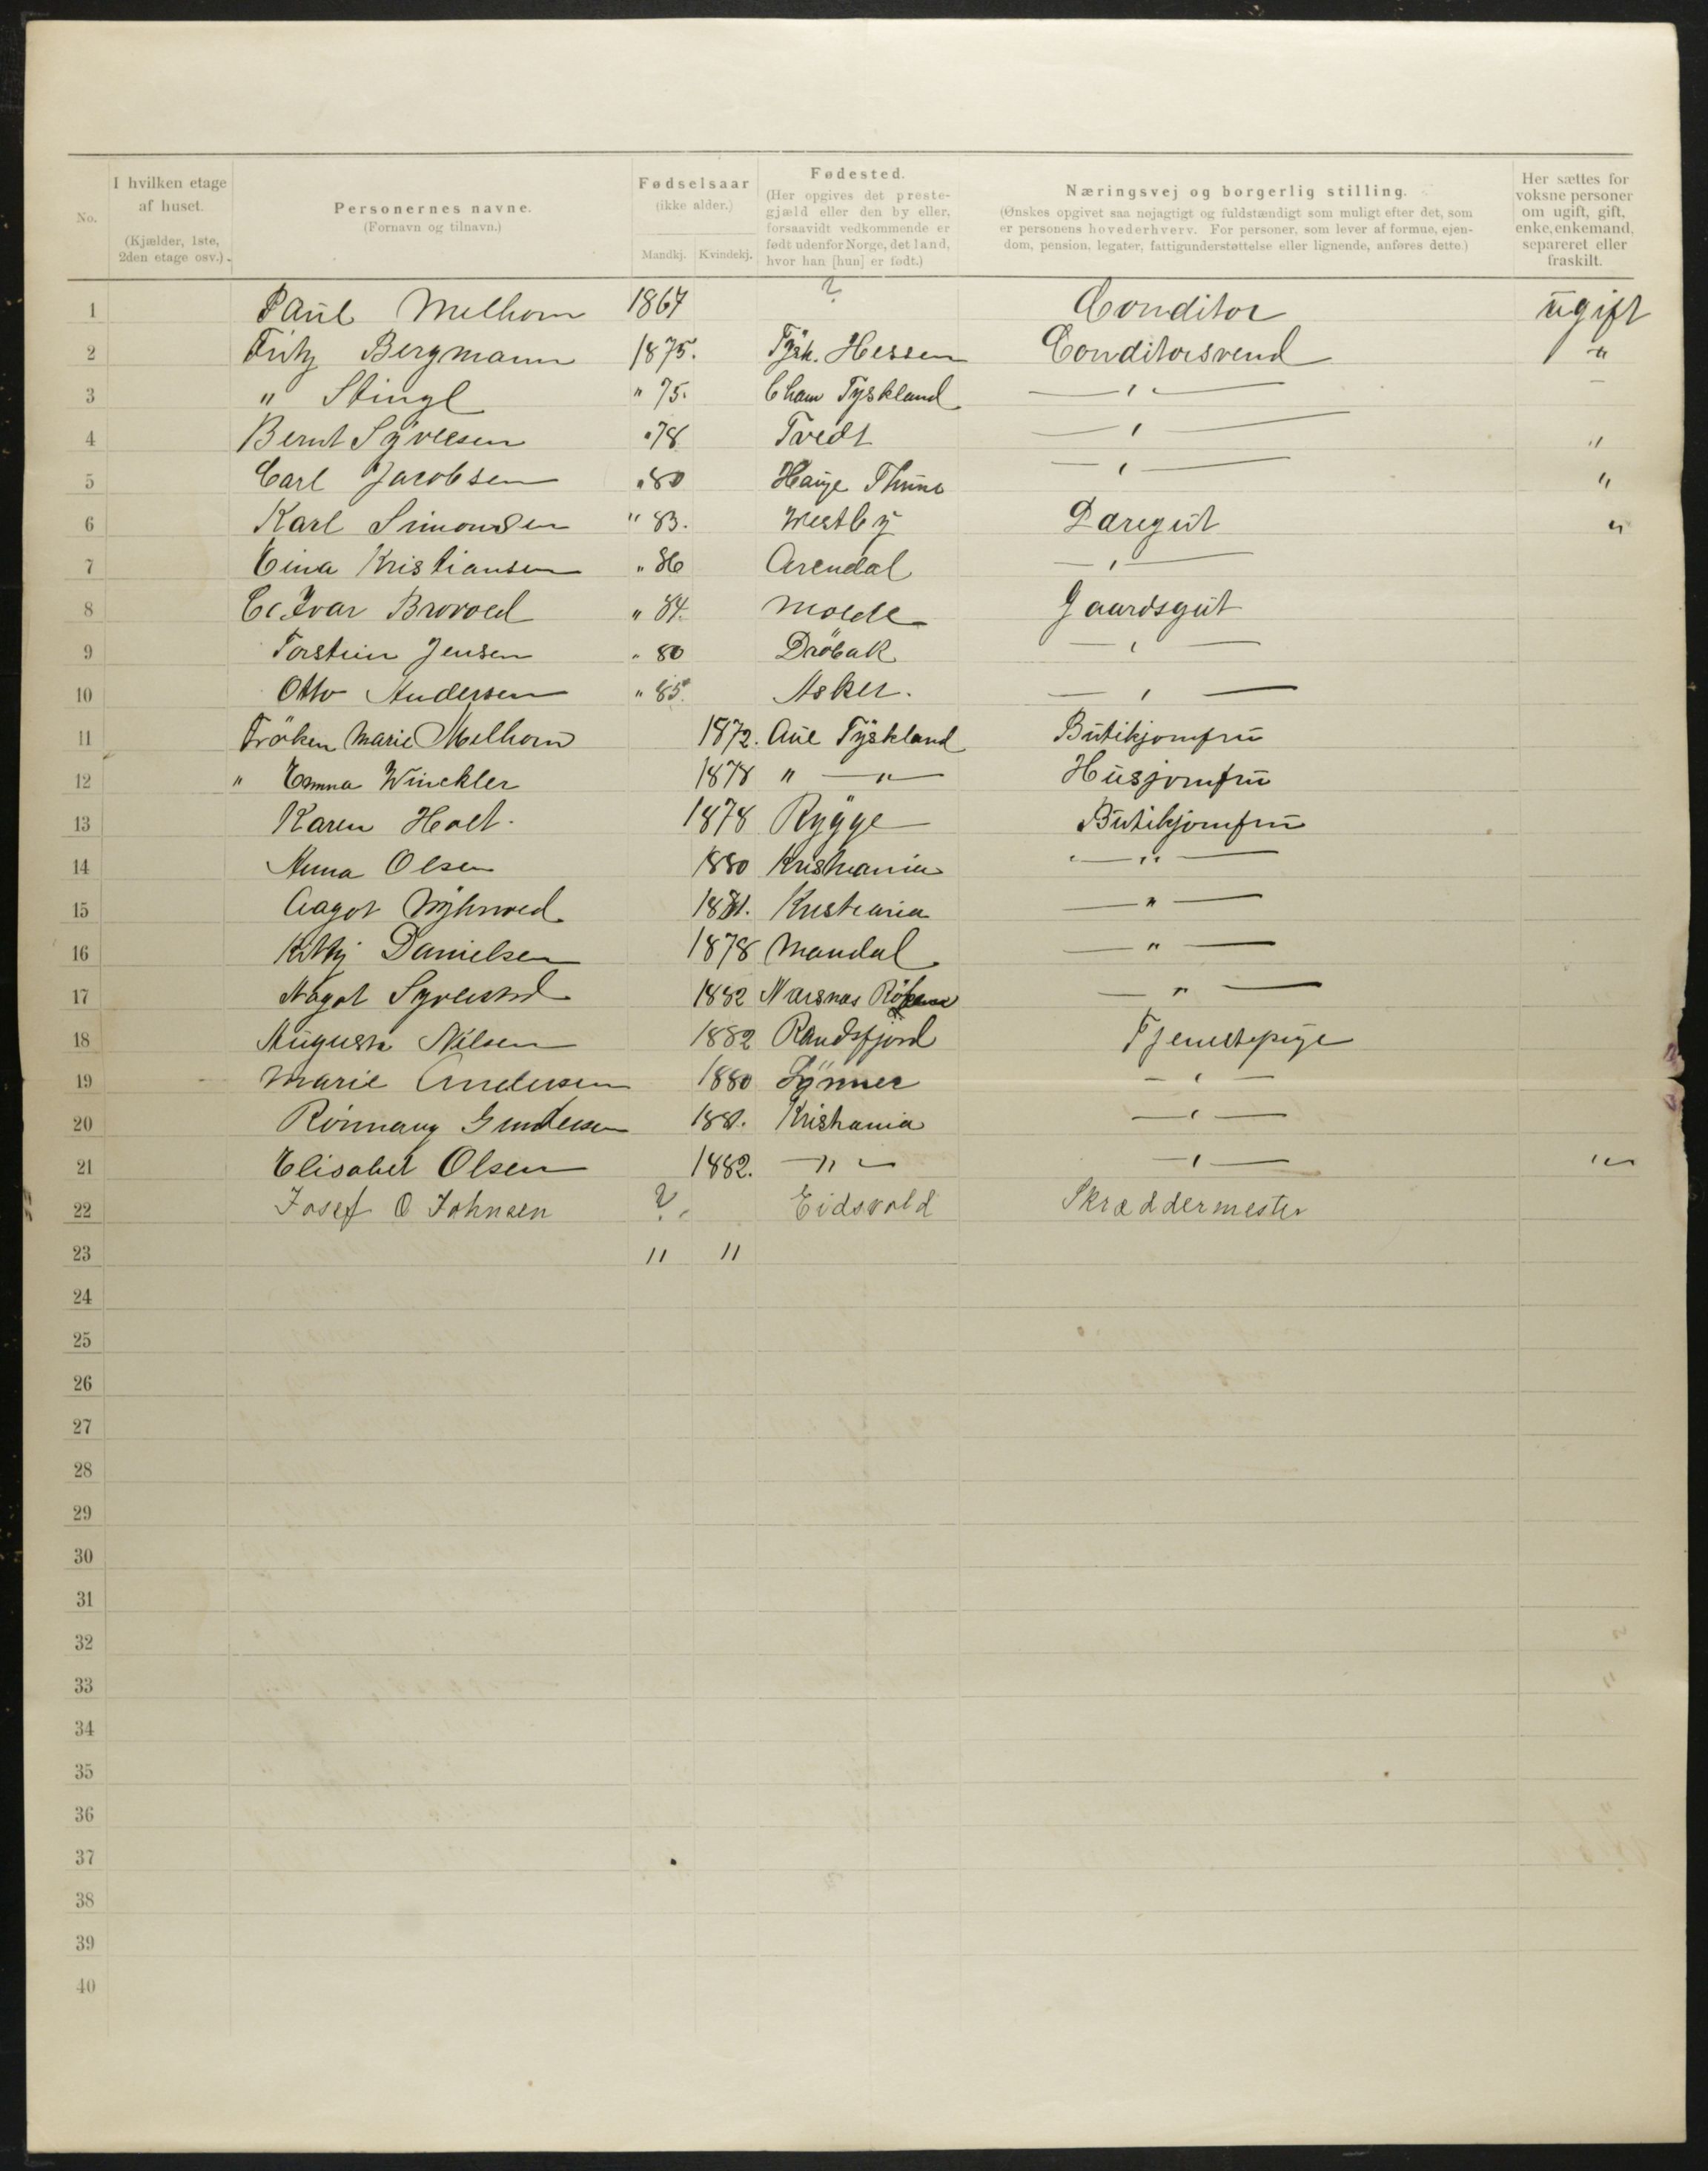 No.
I hvilken etage af huset. (Kjælder, 1ste, 2den etage osv.)
Personernes navne. (Fornavn og tilnavn.)
Fødselsaar (ikke alder.) Mandkj. Kvindekj.
Fødested. (Her opgives det prestegjæld eller den by eller, forsaavidt vedkommende er født udenfor Norge, det land, hvor han [hun] er født.)
Næringsvej og borgerlig stilling. (Ønskes opgivet saa nøjagtigt og fuldstændigt som muligt efter det, som er personens hovederhverv. For personer, som lever af formue, ejendom, pension, legater, fattigunderstøttelse eller lignende, anføres dette.)
Her sættes for voksne personer om ugift, gift, enke, enkemand, separeret eller fraskilt.
1 Paul Melhorn 1867 ? Conditor ugift
2 Fritz Bergmann 1875. Tysk. Hessen Conditorsvend "
3 " Stingl " 75. Cham Tyskland — " —
4 Bernt " 78 Tvedt — " — "
5 Carl Jacobsen " 80 Hauge — " — "
6 Karl Simonsen " 83. Westby Læregut "
7 Kristiansen " 86 Arendal — " —
8 Ivar Brovold " 84. Molde Gaardsgut
9 Torstein Jensen " 80 Dröbak — " —
10 Otto Andersen " 85. Asker. — " —
11 Fröken Marie Melhorn 1872. Aue Tyskland Butikjomfru
12 " Emma Winckler 1878 " — " — Husjomfru
13 Karen Holt. 1878 Rygge Butikjomfru
14 Anna Olsen 1880 Kristiania — " —
15 Aagot 1881. Kristiania — " —
16 Kitty Danielsen 1878 Mandal — " —
17 Aagot 1882 Nærsnæs Röken — " —
18 Augusta Nilsen 1882 Randsfjord Tjenestepige
19 Marie Andersen 1880 — " —
20 Rönnaug Gundersen 1881. Kristiania — " —
21 Elisabet Olsen 1882. — " — — " — "
22 Josef O Johnsen ? Eidsvold Skræddermester
23 " "
24
25
26
27
28
29
30
31
32
33
34
35
36
37
38
39
40